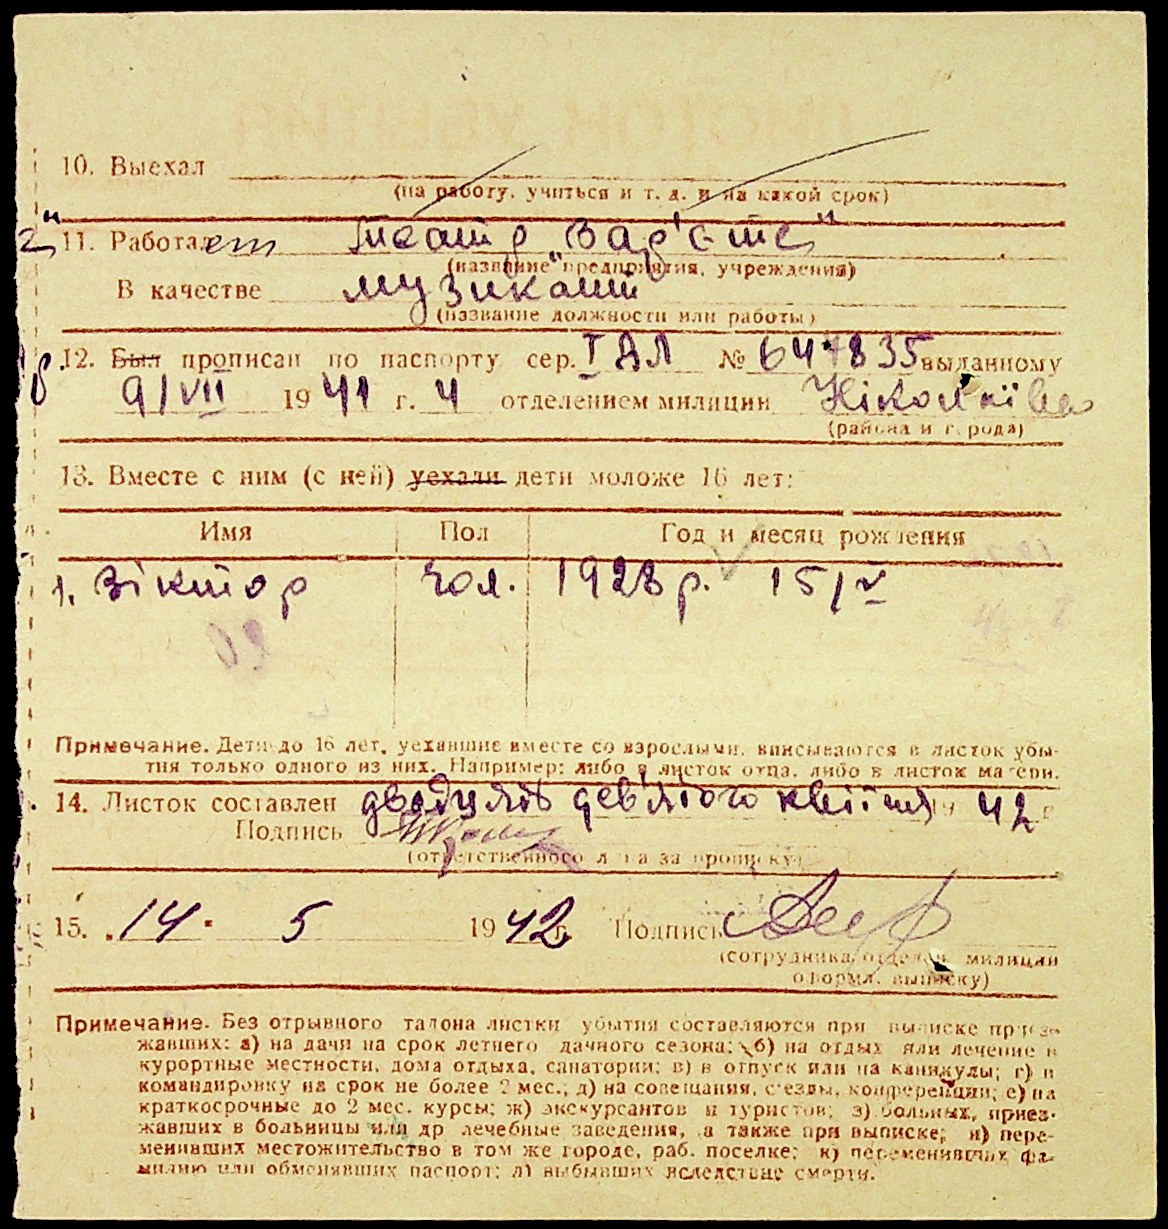 10. Выехал
(на работу, учиться и т. д. и на какой срок)
11. Работает Театр „Вар'єте"
(название предприятия, учреждения)
В качестве музикант
(название должности или работы)
12. Был прописан по паспорту сер. I ДЛ № 647835 выданному
9/VII 1941 г. 4 отделением милиции Ніколаїва
(района и города)
13. Вместе с ним (с ней) уехали дети моложе 16 лет:
Имя Пол Год и месяц рождения
1. Віктор чол. 1928 р. 15/V
Примечание. Дети до 16 лет, уехавшие вместе со взрослыми, вписываются в листок убы-
тия только одного из них. Например: либо в листок отца, либо в листок матери.
14. Листок составлен двадцять дев'ятого квітня 1942 г.
Подпись
(ответственного лица за прописку)
15. 14. 5 1942 г. Подпись
(сотрудника отдела милиции
оформл. выписку)
Примечание. Без отрывного талона листки убытия составляются при выписке приез-
жавших: а) на дачи на срок летнего дачного сезона; б) на отдых или лечение в
курортные местности, дома отдыха, санатории; в) в отпуск или на каникулы; г) в
командировку на срок не более 2 мес.; д) на совещания, съезды, конференции; е) на
краткосрочные до 2 мес. курсы; ж) экскурсантов и туристов; з) больных, приез-
жавших в больницы или др лечебные заведения, а также при выписке; и) пере-
менивших местожительство в том же городе, раб. поселке; к) переменивших фа-
милию или обменявших паспорт; л) выбывших вследствие смерти.